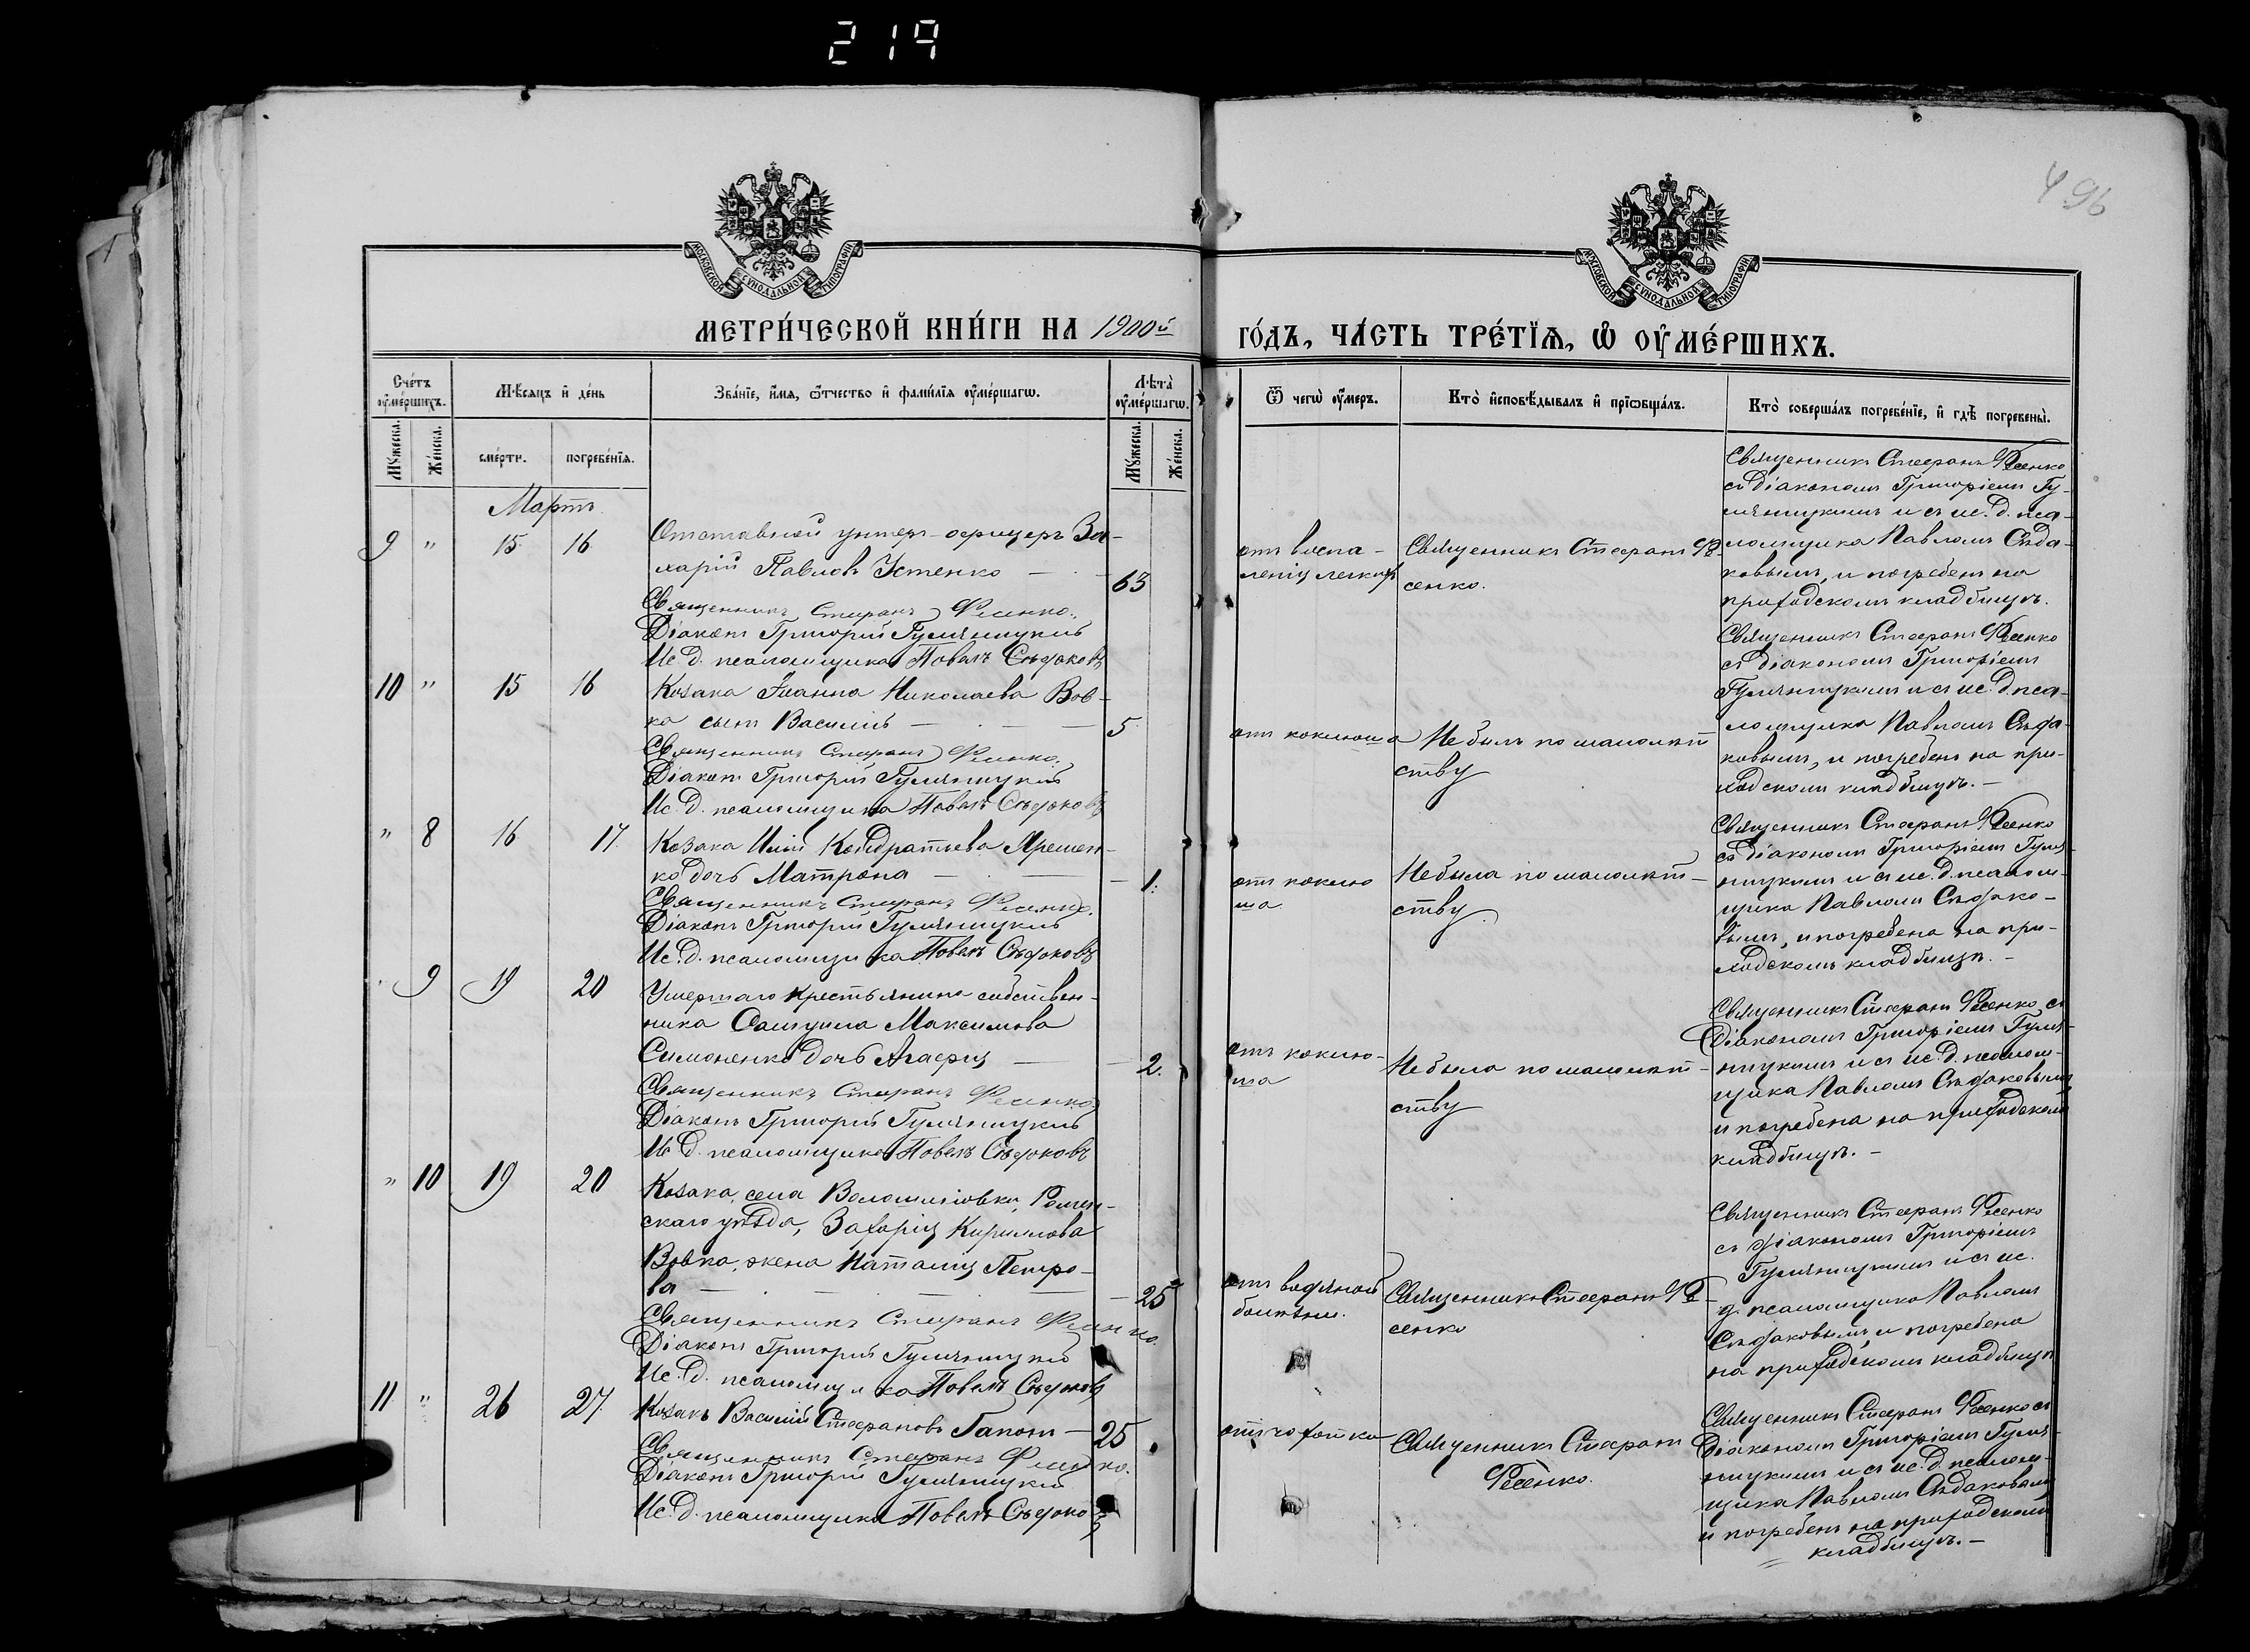 219
496
МОСКОВСКОЙ СѴНОДАЛЬНОЙ ТИПОГРАФІИ
МОСКОВСКОЙ СѴНОДАЛЬНОЙ ТИПОГРАФІИ
МЕТРИ́ЧЕСКОЙ КНИ́ГИ НА 1900й
ГО́ДЪ, ЧА́СТЬ ТРЕ́ТІѦ, Ѡ҆ ОУ҆МЕ́РШИХЪ.
Сче́тъ оу҆ме́ршихъ.
Мꙋ́жеска.
Же́нска.
Мѣ́сяцъ и҆ де́нь
сме́рти.
погребе́нїя.
Зва́нїе, и҆́мя, ѻ҆́тчество и҆ фами́лїя оу҆ме́ршагѡ.
Лѣ́та оу҆ме́ршагѡ.
Мꙋ́жеска.
Же́нска.
Ѿ чегѡ̀ оу҆́меръ.
Кто̀ и҆сповѣ́дывалъ и҆ прїѡбща́лъ.
Кто̀ соверша́лъ погребе́нїе, и҆ гдѣ̀ погребены̀.
Мартъ
9 " 15 16
Отставной унтер-офицеръ За-
харій Павловъ Устенко — 63
Священникъ Стефанъ Фесенко.
Діаконъ Григорій Гумяницкій
Ис. д. псаломщика Павелъ Съдаковъ
отъ воспа-
ленія легкихъ
Священникъ Стефанъ Фе-
сенко.
Священникъ Стефанъ Фесенко
съ діакономъ Григоріемъ Гу-
мяницкимъ и съ ис. д. пса-
ломщика Павломъ Сѣда-
ковымъ, и погребенъ на
приходскомъ кладбищѣ.
10 " 15 16
Козака Іоанна Николаева Вов-
ка сынъ Василій — 5
Священникъ Стефанъ Фесенко.
Діаконъ Григорій Гумяницкій
Ис. д. псаломщика Павелъ Съдаковъ
отъ коклюша
Не былъ по малолѣт
ству
Священникъ Стефанъ Фесенко
съ діакономъ Григоріемъ
Гумяницкимъ и съ ис. д. пса-
ломщика Павломъ Сѣда-
ковымъ, и погребенъ на при-
ходскомъ кладбищѣ. —
" 8 16 17.
Козака Иліи Кондратьева Яремен-
ко дочь Матрона — 1.
Священникъ Стефанъ Фесенко.
Діаконъ Григорій Гумяницкій
Ис. д. псаломщика Павелъ Съдаковъ
отъ коклю
ша
Не была по малолѣт-
ству
Священникъ Стефанъ Фесенко
съ діакономъ Григоріемъ Гумя-
ницкимъ и съ ис. д. псалом-
щика Павломъ Сѣдако-
вымъ, и погребена на при-
ходскомъ кладбищѣ. —
" 9 19 20
Умершаго крестьянина собствен-
ника Самуила Максимова
Симоненко дочь Агафія — 2.
Священникъ Стефанъ Фесенко
Діаконъ Григорій Гумяницкій
Ис. д. псаломщика Павелъ Съдаковъ
отъ коклю-
ша
Не была по малолѣт-
ству
Священникъ Стефанъ Фесенко съ
діакономъ Григоріемъ Гумя-
ницкимъ и съ ис. д. псалом-
щика Павломъ Сѣдаковымъ
и погребена на приходскомъ
кладбищѣ. —
" 10 19 20
Козака, села Волошиновки, Ромен-
скаго уѣзда, Захарія Кириллова
Вовка, жена Наталія Петро-
ва — 25
Священникъ Стефанъ Фесенко.
Діаконъ Григорій Гумяницкій
Ис. д. псаломщика Павелъ Съдаковъ
отъ водяной
болѣзни.
Священникъ Стефанъ Фе-
сенко
Священникъ Стефанъ Фесенко
съ діакономъ Григоріемъ
Гумяницкимъ и съ ис.
д. псаломщика Павломъ
Сѣдаковымъ, и погребена
на приходскомъ кладбищѣ
11 " 26 27.
Козакъ Василій Стефановъ Гапонъ — 25
Священникъ Стефанъ Фесенко.
Діаконъ Григорій Гумяницкій
Ис. д. псаломщика Павелъ Съдаковъ
отъ чахотки
Священникъ Стефанъ
Фесенко.
Священникъ Стефанъ Фесенко съ
діакономъ Григоріемъ Гумя-
ницкимъ и съ ис. д. псалом-
щика Павломъ Сѣдаковымъ
и погребенъ на приходскомъ
кладбищѣ. —